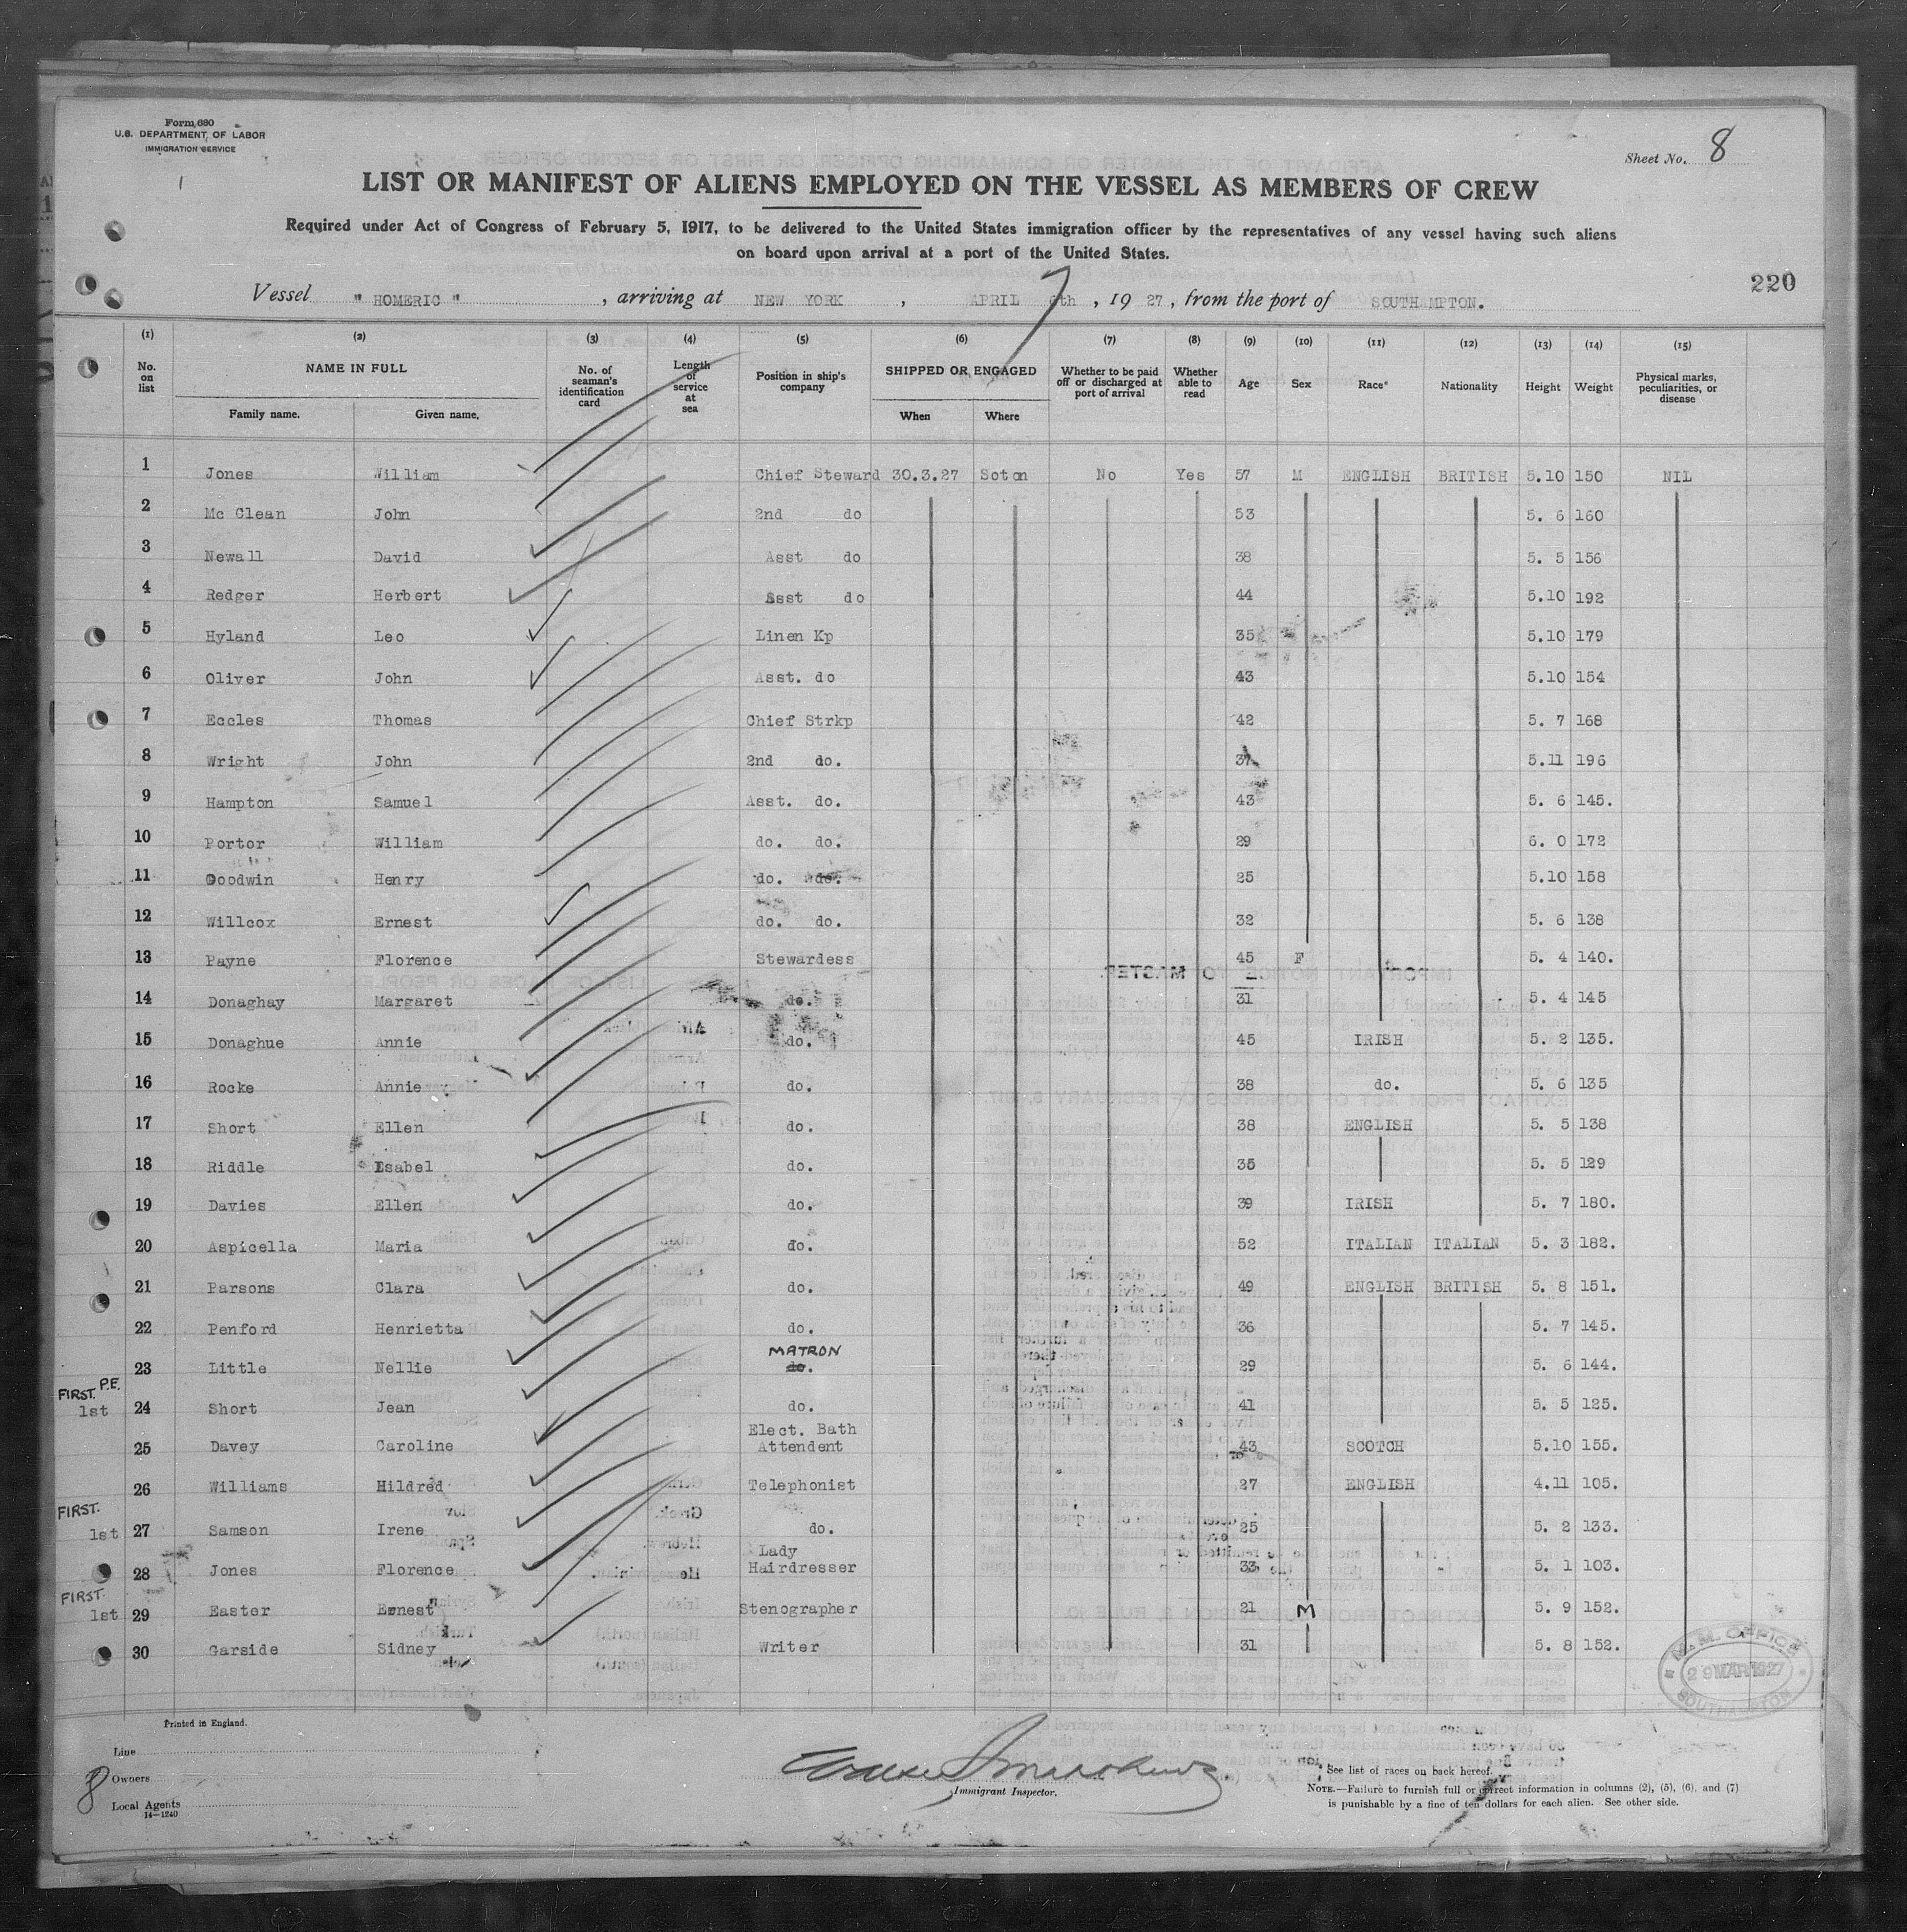 Form 680
U.S. DEPARTMENT OF LABOR
IMMIGRATION SERVICE
Sheet No. 8
LIST OR MANIFEST OF ALIENS EMPLOYED ON THE VESSEL AS MEMBERS OF CREW
Required under Act of Congress of February 5, 1917, to be delivered to the United States immigration officer by the representatives of any vessel having such aliens
on board upon arrival at a port of the United States.
220
Vessel " HOMERIC " , arriving at NEW YORK , APRIL 6th 7 , 19 27 , from the port of SOUTHAMPTON.
(1) (2) (3) (4) (5) (6) (7) (8) (9) (10) (11) (12) (13) (14) (15)
No. on list NAME IN FULL Family name. Given name. No. of seaman's identification card Length of service at sea Position in ship's company SHIPPED OR ENGAGED When Where Whether to be paid off or discharged at port of arrival Whether able to read Age Sex Race* Nationality Height Weight Physical marks, peculiarities, or disease
1 Jones William Chief Steward 30.3.27 Soton No Yes 57 M ENGLISH BRITISH 5.10 150 NIL
2 Mc Clean John 2nd do 53 5. 6 160
3 Newall David Asst do 38 5. 5 156
4 Redger Herbert Asst do 44 5.10 192
5 Hyland Leo Linen Kp 35 5.10 179
6 Oliver John Asst. do 43 5.10 154
7 Eccles Thomas Chief Strkp 42 5. 7 168
8 Wright John 2nd do. 37 5.11 196
9 Hampton Samuel Asst. do. 43 5. 6 145.
10 Portor William do. do. 29 6. 0 172
11 Goodwin Henry do. do. 25 5.10 158
12 Willcox Ernest do. do. 32 5. 6 138
13 Payne Florence Stewardess 45 F 5. 4 140.
14 Donaghay Margaret do. 31 5. 4 145
15 Donaghue Annie do. 45 IRISH 5. 2 135.
16 Rocke Annie do. 38 do. 5. 6 135
17 Short Ellen do. 38 ENGLISH 5. 5 138
18 Riddle Isabel do. 35 5. 5 129
19 Davies Ellen do. 39 IRISH 5. 7 180.
20 Aspicella Maria do. 52 ITALIAN ITALIAN 5. 3 182.
21 Parsons Clara do. 49 ENGLISH BRITISH 5. 8 151.
22 Penford Henrietta do. 36 5. 7 145.
MATRON
23 Little Nellie do. 29 5. 6 144.
FIRST. P.E.
1st 24 Short Jean do. 41 5. 5 125.
Elect. Bath
25 Davey Caroline Attendent 43 SCOTCH 5.10 155.
26 Williams Hildred Telephonist 27 ENGLISH 4.11 105.
FIRST.
1st 27 Samson Irene do. 25 5. 2 133.
Lady
28 Jones Florence Hairdresser 33 5. 1 103.
FIRST.
1st 29 Easter Ernest Stenographer 21 M 5. 9 152.
30 Garside Sidney Writer 31 5. 8 152.
M.M. OFFICE
29 MAR 1927
SOUTHAMPTON
Printed in England.
Line
Owners
8
Local Agents
14—1240
Immigrant Inspector.
* See list of races on back hereof.
NOTE.—Failure to furnish full or correct information in columns (2), (5), (6), and (7)
is punishable by a fine of ten dollars for each alien. See other side.